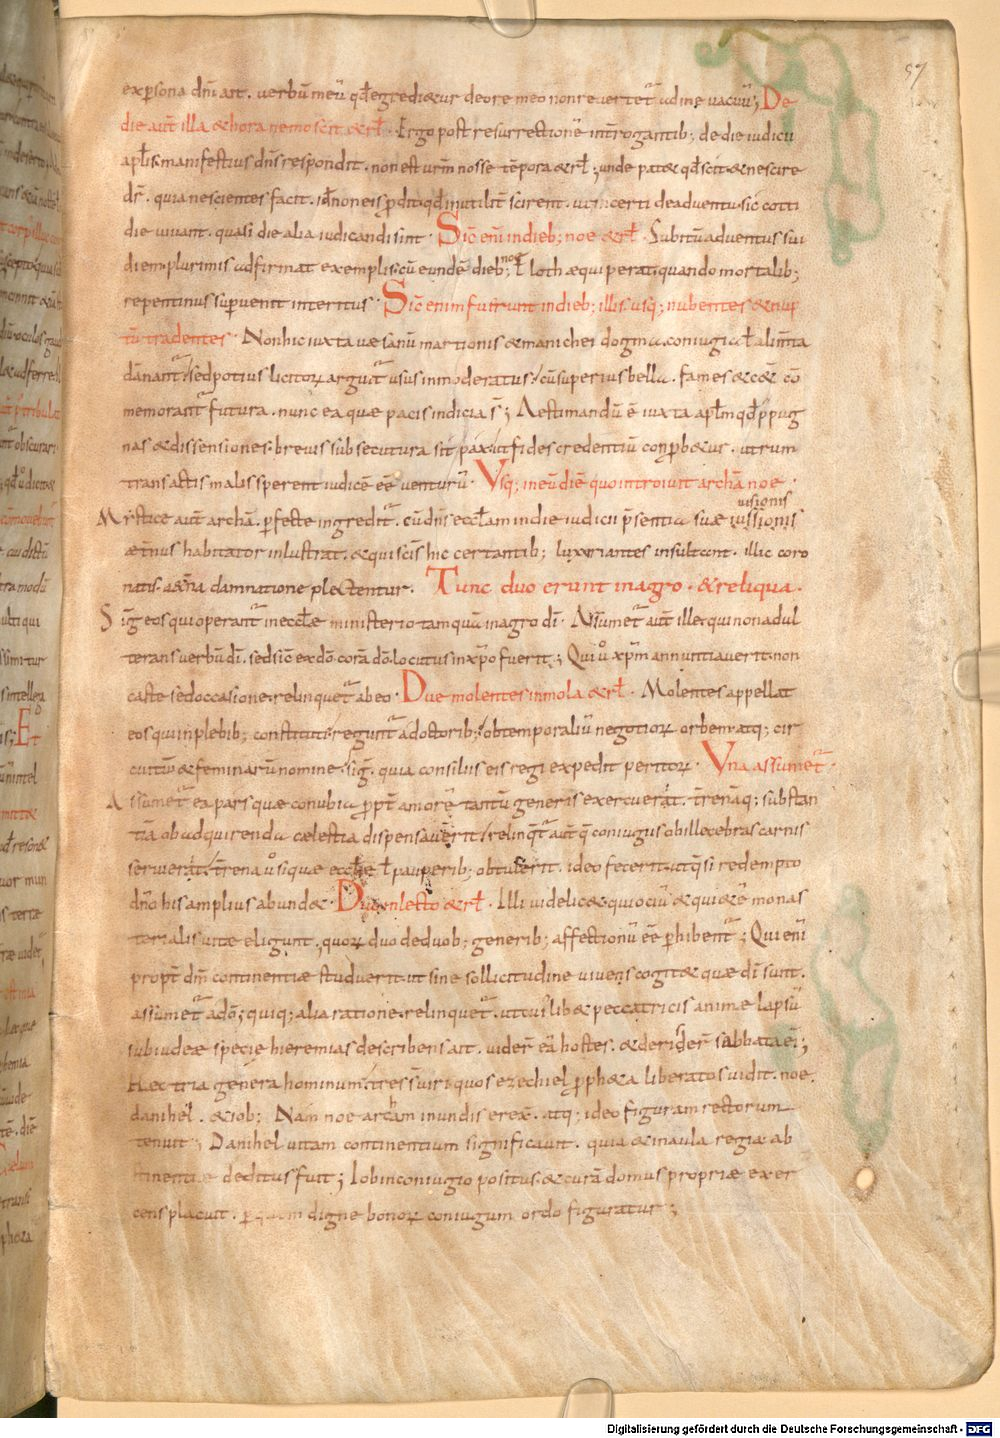 57
ex persona dn̄i ait. verbū meū qđ egredi&ur de ore meo non revertet̄ ad me vacuū; De
die aut̄ illa & hora nemo scit & rł. Ergo post resurrectionē int̄rogantib; de die iudicii
aplīs manifestius dn̄s respondit. non est urm̄ nosse tēpora & rł; unde pat& qđ scit & nescire
dr̄. quia nescientes facit. id non eis p̄dit qđ inutilit̄ scirent. ut incerti de adventu sic cotti
die vivant. quasi die alia iudicandi sint. Sic̄ enī in dieb; noe & rł. Subitū adventus sui
diem plurimis adfirmat exemplis. cū eundē dieb; noe ł loth æquiperat. quando mortalib;
repentinus supervenit interitus. Sic̄ enim fuerunt in dieb; illis usq; nubentes & nup
tū tradentes. Non hic iuxta væsanū martionis & manichei dogma. coniugia ł alim̄ta
dānant̄. sed potius licitorum arguit̄ usus inmoderatus. cū superius bella. fames & c&̄ cō
memorant̄ futura. nunc ea quæ pacis indicia s̄; Aestimandū ē iuxta aplm̄ qđ p̄ pug
nas & dissensiones. brevis subsecutura sit pax. ut fides credentiū conprob&ur. utrum
transactis malis sperent iudicē eē venturū. Usq; in eū diē quo introivit archā noe.
visionis
Mystice aut̄ archā. p̄fecte ingredit̄. cū dn̄s eccłam in die iudicii p̄sentia suæ iussionis
æt̄nus habitator inlustrat. & qui sc̄is hic certantib; luxuriantes insultant. illic coro
natis. æt̄na damnatione plectentur. Tunc duo erunt in agro. & reliqua.
Sig̅ eos qui operant̄ in eccłæ ministerio tamquā in agro dī. Assumet̄ aut̄ ille qui non adul
terans verbū dī. sed sic̄ ex dō corā dō locutus in xp̄o fuerit; Qui v̊ xp̄m annuntiaverit non
caste sed occasione. relinquet̄ ab eo. Due molentes in mola & rł. Molentes appellat
eos qui in plebib; constituti. regunt̄ a doctorib; ob temporaliū negotiorum orbem atq; cir
cuitū & feminarū nomine. sig̅. quia consiliis eis regi expedit peritorum. Una assumet̄.
Assumet̄ ea pars quæ conubia pr̄opt̄ amorē tantū generis exercuerat. t̄renaq; substan
tia ob adquirenda cælestia dispensaverit. relinq̄t̄ aut̄ q̄ coniugiis ob illecebras carnis
servierat. t̄rena v̊ siquæ eccłæ ł pauperib; obtulerit. ideo fecerit ut q̄si redempto
dn̄o his amplius abund&. Duo in lecto & rł. Illi videlic& qui ociū & qui&ē monas
terialis vitæ eligunt. quorum duo de duob; generib; affectionū eē p̄hibent̄; Qui enī
propt̄ dn̄m continentiæ studuerit. ut sine sollicitudine vivens cogit& quæ dī sunt.
assumet̄ a dō; quiq; alia ratione. relinquet̄. ut cuilib& peccatricis animæ lapsū
sub iudeæ speciæ hieremias describens ait. vider̄ eā hostes. & deriser̄ sabbata ei;
Haec tria genera hominum. tres viri quos ezechiel p̄ph&a liberatos vidit. noe.
danihel. & iob; Nam noe archam in undis er&it. atq; ideo figuram rectorum
tenuit; Danihel vitam continentium significavit. quia & in aula regiæ ab
stinentiæ deditus fuit; Iob in coniugio positus. & curā domus propriæ exer
cens placuit. p̄ quem digne bonorum coniugum ordo figuratur;
Digitalisierung gefördert durch die Deutsche Forschungsgemeinschaft - DFG